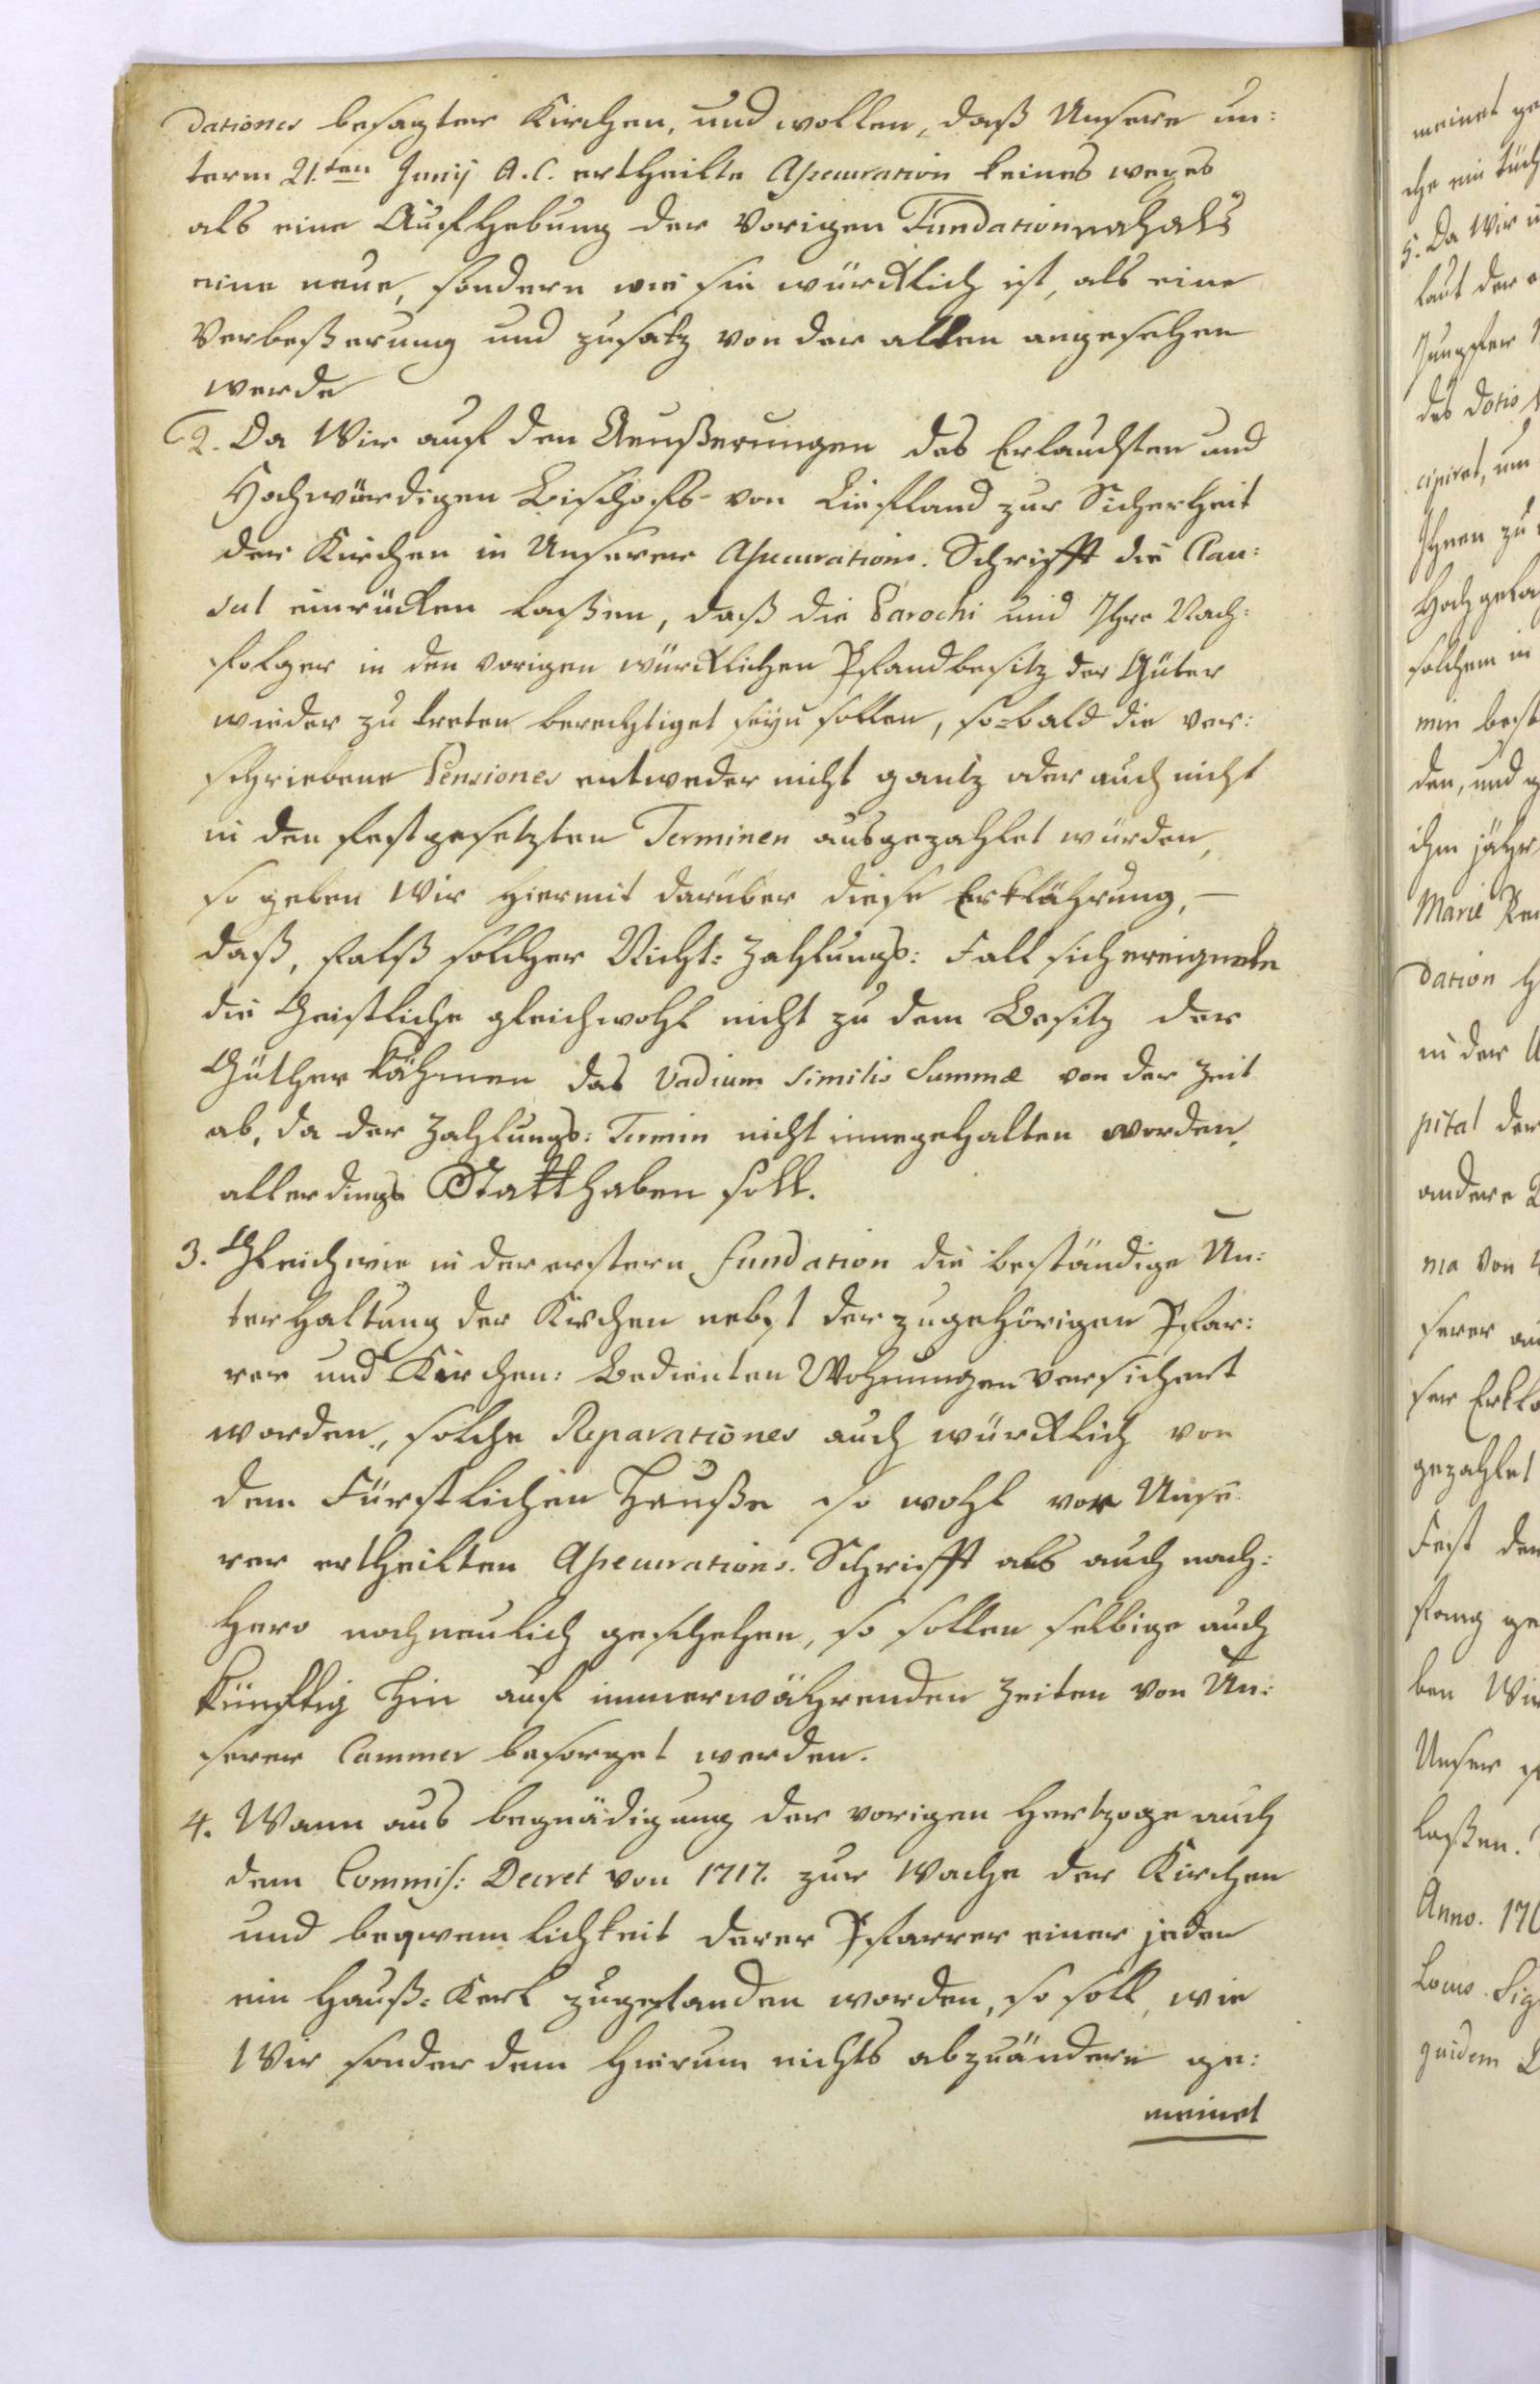 dationes besagter Kirchen, und wollen, daß Unsere un:
term 21.ten Junij A. C. ertheilte Assecuration keines weges
als eine Aufhebung der vorigen Fundation als
eine neue, sondern wie sie würcklich ist, als eine
Verbeßerung und zusatz von der alten angesehen
werde
2. Da Wir auf den Aeußerungen des Erlauchten und
Hochwürdigen Bischofs von Liefland zur Sicherheit
der Kirchen in Unserer Assecurations. Schrifft die Clau:
sul einrücken laßen, daß die Parochi und Ihre Nach:
folger in den vorigen würcklichen Pfandbesitz der Güter
wieder zu treten berechtiget seyn sollen, so-bald die ver:
schriebene Pensiones entweder nicht gantz oder auch nicht
in den festgesetzten Terminen ausgezahlet würden,
so geben Wir hiermit darüber diese Erklährung, —
daß, falß solcher Nicht: Zahlungs: Fall sich ereignete
die Geistliche gleichwohl nicht zu dem Besitz der
Güther kähmen das Vadium similis Summæ von der Zeit
ab, da der Zahlungs: Termin nicht innegehalten worden,
allerdings Statt haben soll.
3. Gleichwie in der erstern fundation die beständige Un:
terhaltung der Kirchen nebst der zugehörigen Pfar:
rer und Kirchen: Bedienten Wohnungen versichert
worden, solche Reparationes auch würcklich von
dem Fürstlichen Hauße so wohl vor Unse:
rer ertheilten Assecurations. Schrifft als auch nach:
hero noch neulich geschehen, so sollen selbige auch
künfftig hin auf immerwährenden Zeiten von Un:
serer Cammer besorget werden.
4. Wann aus begnädigung der vorigen Hertzoge auch
dem Commiss: Decret von 1717. zur Wache der Kirchen
und beqwemlichkeit derer Pfarrer einer jeden
ein Hauß: Kerl zugestanden worden, so soll, wie
Wir sonder dem hierum nichts abzuändern ge:
meinet
meinet ge
che ein tüch
5. Da Wir
laut der
Jungfer
des Dotis
cipiret, um
Ihnen zu
Hochgela
solchem in
min best
den, und
ihm jähr
Marie
dation
in der
pital der
andere
ma von
serer
ser Erklä
gezahlet
Fest der
fang ge
ben Wir
Unser
laßen.
Anno. 176
Locus Sig
quidem